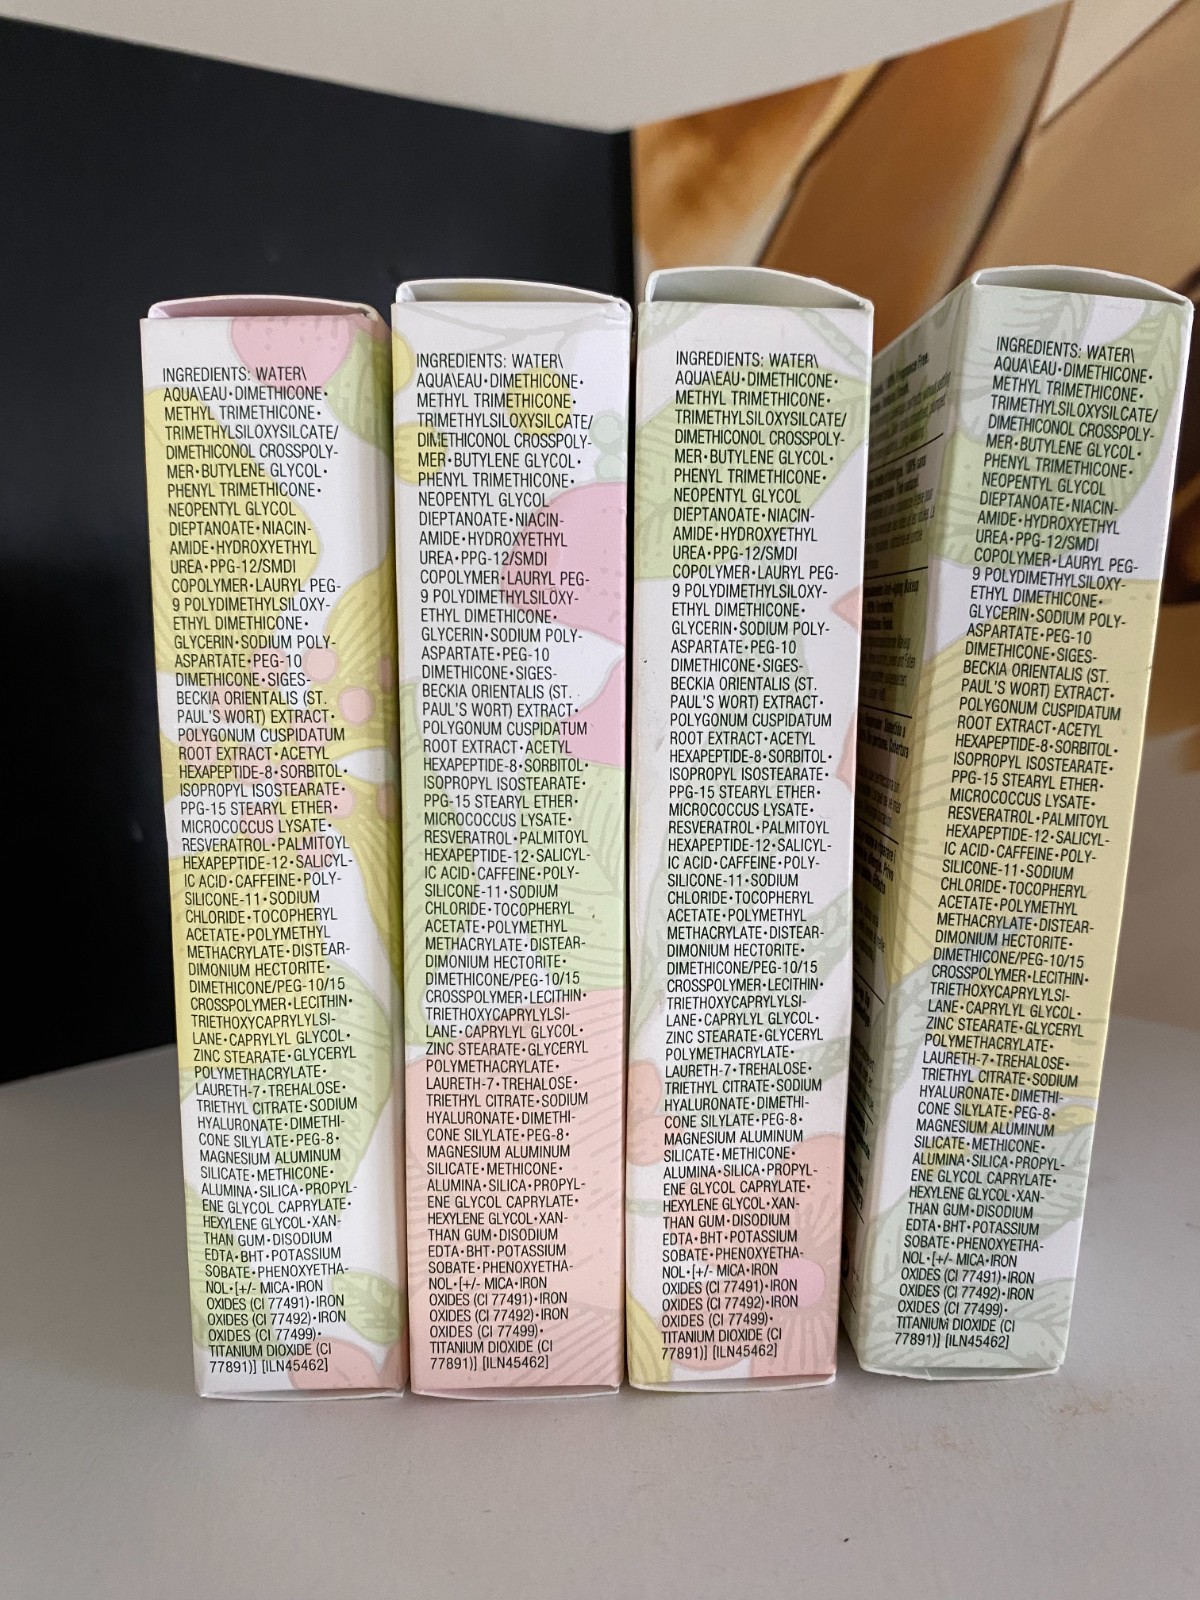 INGREDIENTS: WATER\
AQUA\EAU•DIMETHICONE•
METHYL TRIMETHICONE•
TRIMETHYLSILOXYSILCATE/
DIMETHICONOL CROSSPOLY-
MER•BUTYLENE GLYCOL•
PHENYL TRIMETHICONE•
NEOPENTYL GLYCOL
DIEPTANOATE•NIACIN-
AMIDE•HYDROXYETHYL
UREA•PPG-12/SMDI
COPOLYMER•LAURYL PEG-
9 POLYDIMETHYLSILOXY-
ETHYL DIMETHICONE•
GLYCERIN•SODIUM POLY-
ASPARTATE•PEG-10
DIMETHICONE•SIGES-
BECKIA ORIENTALIS (ST.
PAUL'S WORT) EXTRACT•
POLYGONUM CUSPIDATUM
ROOT EXTRACT•ACETYL
HEXAPEPTIDE-8•SORBITOL•
ISOPROPYL ISOSTEARATE•
PPG-15 STEARYL ETHER•
MICROCOCCUS LYSATE•
RESVERATROL•PALMITOYL
HEXAPEPTIDE-12•SALICYL-
IC ACID•CAFFEINE•POLY-
SILICONE-11•SODIUM
CHLORIDE•TOCOPHERYL
ACETATE•POLYMETHYL
METHACRYLATE•DISTEAR-
DIMONIUM HECTORITE•
DIMETHICONE/PEG-10/15
CROSSPOLYMER•LECITHIN•
TRIETHOXYCAPRYLYLSI-
LANE•CAPRYLYL GLYCOL•
ZINC STEARATE•GLYCERYL
POLYMETHACRYLATE•
LAURETH-7•TREHALOSE•
TRIETHYL CITRATE•SODIUM
HYALURONATE•DIMETHI-
CONE SILYLATE•PEG-8•
MAGNESIUM ALUMINUM
SILICATE•METHICONE•
ALUMINA•SILICA•PROPYL-
ENE GLYCOL CAPRYLATE•
HEXYLENE GLYCOL•XAN-
THAN GUM•DISODIUM
EDTA•BHT•POTASSIUM
SOBATE•PHENOXYETHA-
NOL•[+/- MICA•IRON
OXIDES (CI 77491)•IRON
OXIDES (CI 77492)•IRON
OXIDES (CI 77499)•
TITANIUM DIOXIDE (CI
77891)] [ILN45462]
INGREDIENTS: WATER\
AQUA\EAU•DIMETHICONE•
METHYL TRIMETHICONE•
TRIMETHYLSILOXYSILCATE/
DIMETHICONOL CROSSPOLY-
MER•BUTYLENE GLYCOL•
PHENYL TRIMETHICONE•
NEOPENTYL GLYCOL
DIEPTANOATE•NIACIN-
AMIDE•HYDROXYETHYL
UREA•PPG-12/SMDI
COPOLYMER•LAURYL PEG-
9 POLYDIMETHYLSILOXY-
ETHYL DIMETHICONE•
GLYCERIN•SODIUM POLY-
ASPARTATE•PEG-10
DIMETHICONE•SIGES-
BECKIA ORIENTALIS (ST.
PAUL'S WORT) EXTRACT•
POLYGONUM CUSPIDATUM
ROOT EXTRACT•ACETYL
HEXAPEPTIDE-8•SORBITOL•
ISOPROPYL ISOSTEARATE•
PPG-15 STEARYL ETHER•
MICROCOCCUS LYSATE•
RESVERATROL•PALMITOYL
HEXAPEPTIDE-12•SALICYL-
IC ACID•CAFFEINE•POLY-
SILICONE-11•SODIUM
CHLORIDE•TOCOPHERYL
ACETATE•POLYMETHYL
METHACRYLATE•DISTEAR-
DIMONIUM HECTORITE•
DIMETHICONE/PEG-10/15
CROSSPOLYMER•LECITHIN•
TRIETHOXYCAPRYLYLSI-
LANE•CAPRYLYL GLYCOL•
ZINC STEARATE•GLYCERYL
POLYMETHACRYLATE•
LAURETH-7•TREHALOSE•
TRIETHYL CITRATE•SODIUM
HYALURONATE•DIMETHI-
CONE SILYLATE•PEG-8•
MAGNESIUM ALUMINUM
SILICATE•METHICONE•
ALUMINA•SILICA•PROPYL-
ENE GLYCOL CAPRYLATE•
HEXYLENE GLYCOL•XAN-
THAN GUM•DISODIUM
EDTA•BHT•POTASSIUM
SOBATE•PHENOXYETHA-
NOL•[+/- MICA•IRON
OXIDES (CI 77491)•IRON
OXIDES (CI 77492)•IRON
OXIDES (CI 77499)•
TITANIUM DIOXIDE (CI
77891)] [ILN45462]
INGREDIENTS: WATER\
AQUA\EAU•DIMETHICONE•
METHYL TRIMETHICONE•
TRIMETHYLSILOXYSILCATE/
DIMETHICONOL CROSSPOLY-
MER•BUTYLENE GLYCOL•
PHENYL TRIMETHICONE•
NEOPENTYL GLYCOL
DIEPTANOATE•NIACIN-
AMIDE•HYDROXYETHYL
UREA•PPG-12/SMDI
COPOLYMER•LAURYL PEG-
9 POLYDIMETHYLSILOXY-
ETHYL DIMETHICONE•
GLYCERIN•SODIUM POLY-
ASPARTATE•PEG-10
DIMETHICONE•SIGES-
BECKIA ORIENTALIS (ST.
PAUL'S WORT) EXTRACT•
POLYGONUM CUSPIDATUM
ROOT EXTRACT•ACETYL
HEXAPEPTIDE-8•SORBITOL•
ISOPROPYL ISOSTEARATE•
PPG-15 STEARYL ETHER•
MICROCOCCUS LYSATE•
RESVERATROL•PALMITOYL
HEXAPEPTIDE-12•SALICYL-
IC ACID•CAFFEINE•POLY-
SILICONE-11•SODIUM
CHLORIDE•TOCOPHERYL
ACETATE•POLYMETHYL
METHACRYLATE•DISTEAR-
DIMONIUM HECTORITE•
DIMETHICONE/PEG-10/15
CROSSPOLYMER•LECITHIN•
TRIETHOXYCAPRYLYLSI-
LANE•CAPRYLYL GLYCOL•
ZINC STEARATE•GLYCERYL
POLYMETHACRYLATE•
LAURETH-7•TREHALOSE•
TRIETHYL CITRATE•SODIUM
HYALURONATE•DIMETHI-
CONE SILYLATE•PEG-8•
MAGNESIUM ALUMINUM
SILICATE•METHICONE•
ALUMINA•SILICA•PROPYL-
ENE GLYCOL CAPRYLATE•
HEXYLENE GLYCOL•XAN-
THAN GUM•DISODIUM
EDTA•BHT•POTASSIUM
SOBATE•PHENOXYETHA-
NOL•[+/- MICA•IRON
OXIDES (CI 77491)•IRON
OXIDES (CI 77492)•IRON
OXIDES (CI 77499)•
TITANIUM DIOXIDE (CI
77891)] [ILN45462]
100% Fragrance Free.
INGREDIENTS: WATER\
AQUA\EAU•DIMETHICONE•
METHYL TRIMETHICONE•
TRIMETHYLSILOXYSILCATE/
DIMETHICONOL CROSSPOLY-
MER•BUTYLENE GLYCOL•
PHENYL TRIMETHICONE•
NEOPENTYL GLYCOL
DIEPTANOATE•NIACIN-
AMIDE•HYDROXYETHYL
UREA•PPG-12/SMDI
COPOLYMER•LAURYL PEG-
9 POLYDIMETHYLSILOXY-
ETHYL DIMETHICONE•
GLYCERIN•SODIUM POLY-
ASPARTATE•PEG-10
DIMETHICONE•SIGES-
BECKIA ORIENTALIS (ST.
PAUL'S WORT) EXTRACT•
POLYGONUM CUSPIDATUM
ROOT EXTRACT•ACETYL
HEXAPEPTIDE-8•SORBITOL•
ISOPROPYL ISOSTEARATE•
PPG-15 STEARYL ETHER•
MICROCOCCUS LYSATE•
RESVERATROL•PALMITOYL
HEXAPEPTIDE-12•SALICYL-
IC ACID•CAFFEINE•POLY-
SILICONE-11•SODIUM
CHLORIDE•TOCOPHERYL
ACETATE•POLYMETHYL
METHACRYLATE•DISTEAR-
DIMONIUM HECTORITE•
DIMETHICONE/PEG-10/15
CROSSPOLYMER•LECITHIN•
TRIETHOXYCAPRYLYLSI-
LANE•CAPRYLYL GLYCOL•
ZINC STEARATE•GLYCERYL
POLYMETHACRYLATE•
LAURETH-7•TREHALOSE•
TRIETHYL CITRATE•SODIUM
HYALURONATE•DIMETHI-
CONE SILYLATE•PEG-8•
MAGNESIUM ALUMINUM
SILICATE•METHICONE•
ALUMINA•SILICA•PROPYL-
ENE GLYCOL CAPRYLATE•
HEXYLENE GLYCOL•XAN-
THAN GUM•DISODIUM
EDTA•BHT•POTASSIUM
SOBATE•PHENOXYETHA-
NOL•[+/- MICA•IRON
OXIDES (CI 77491)•IRON
OXIDES (CI 77492)•IRON
OXIDES (CI 77499)•
TITANIUM DIOXIDE (CI
77891)] [ILN45462]